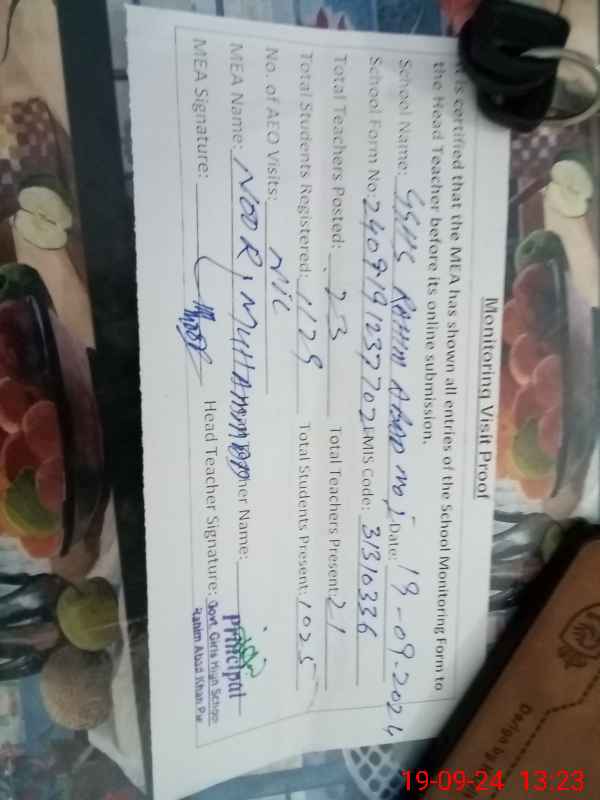 Monitoring Visit Proof
It is certified that the MEA has shown all entries of the School Monitoring Form to
the Head Teacher before its online submission.
School Name: GGHS RAHIM ABAD No 1 Date: 19-09-2024
School Form No: 2409191237702 EMIS Code: 31310336
Total Teachers Posted: 23 Total Teachers Present: 21
Total Students Registered: 1129 Total Students Present: 1025
No. of AEO Visits: NIL
MEA Name: NOOR MUHAMMAD Name:
MEA Signature: Head Teacher Signature:
Principal
Govt. Girls High School
Rahim Abad Khan Pur
Design by
19-09-24 13:23